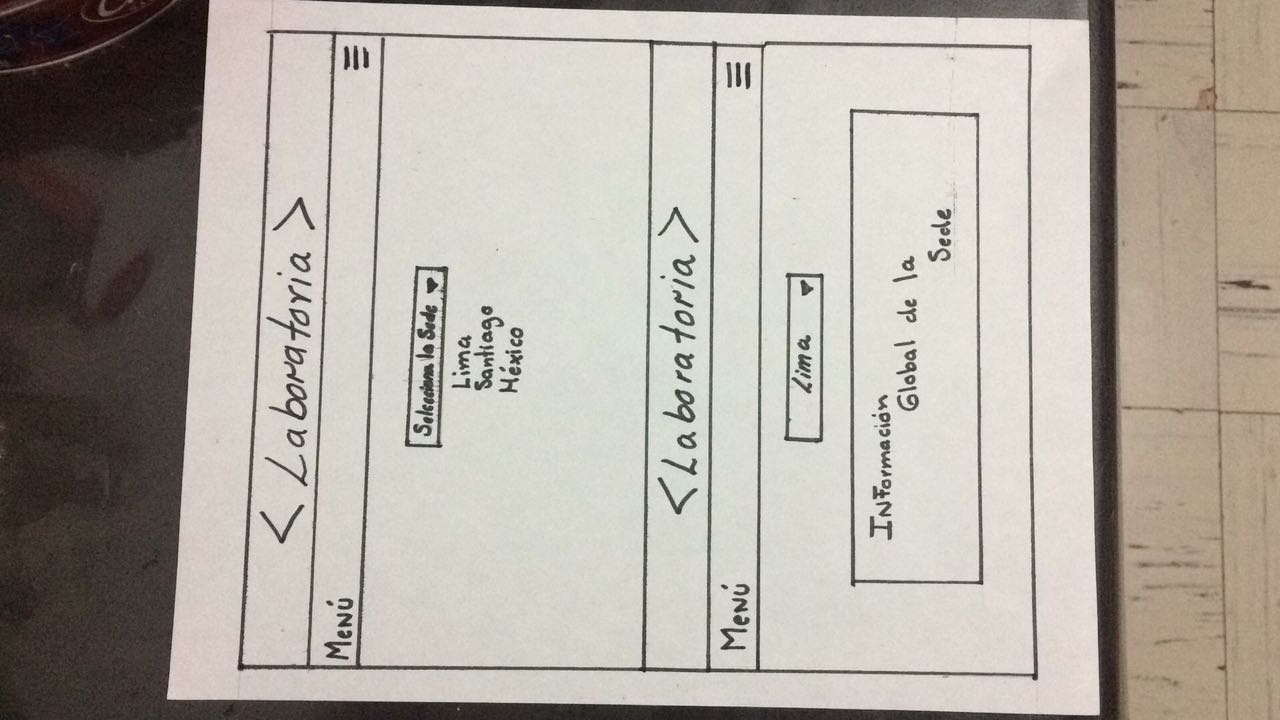 < Laboratoria >
Menú
Selecciona la Sede
Lima
Santiago
México
<Laboratoria>
Menú
Lima
Información
Global de la
Sede